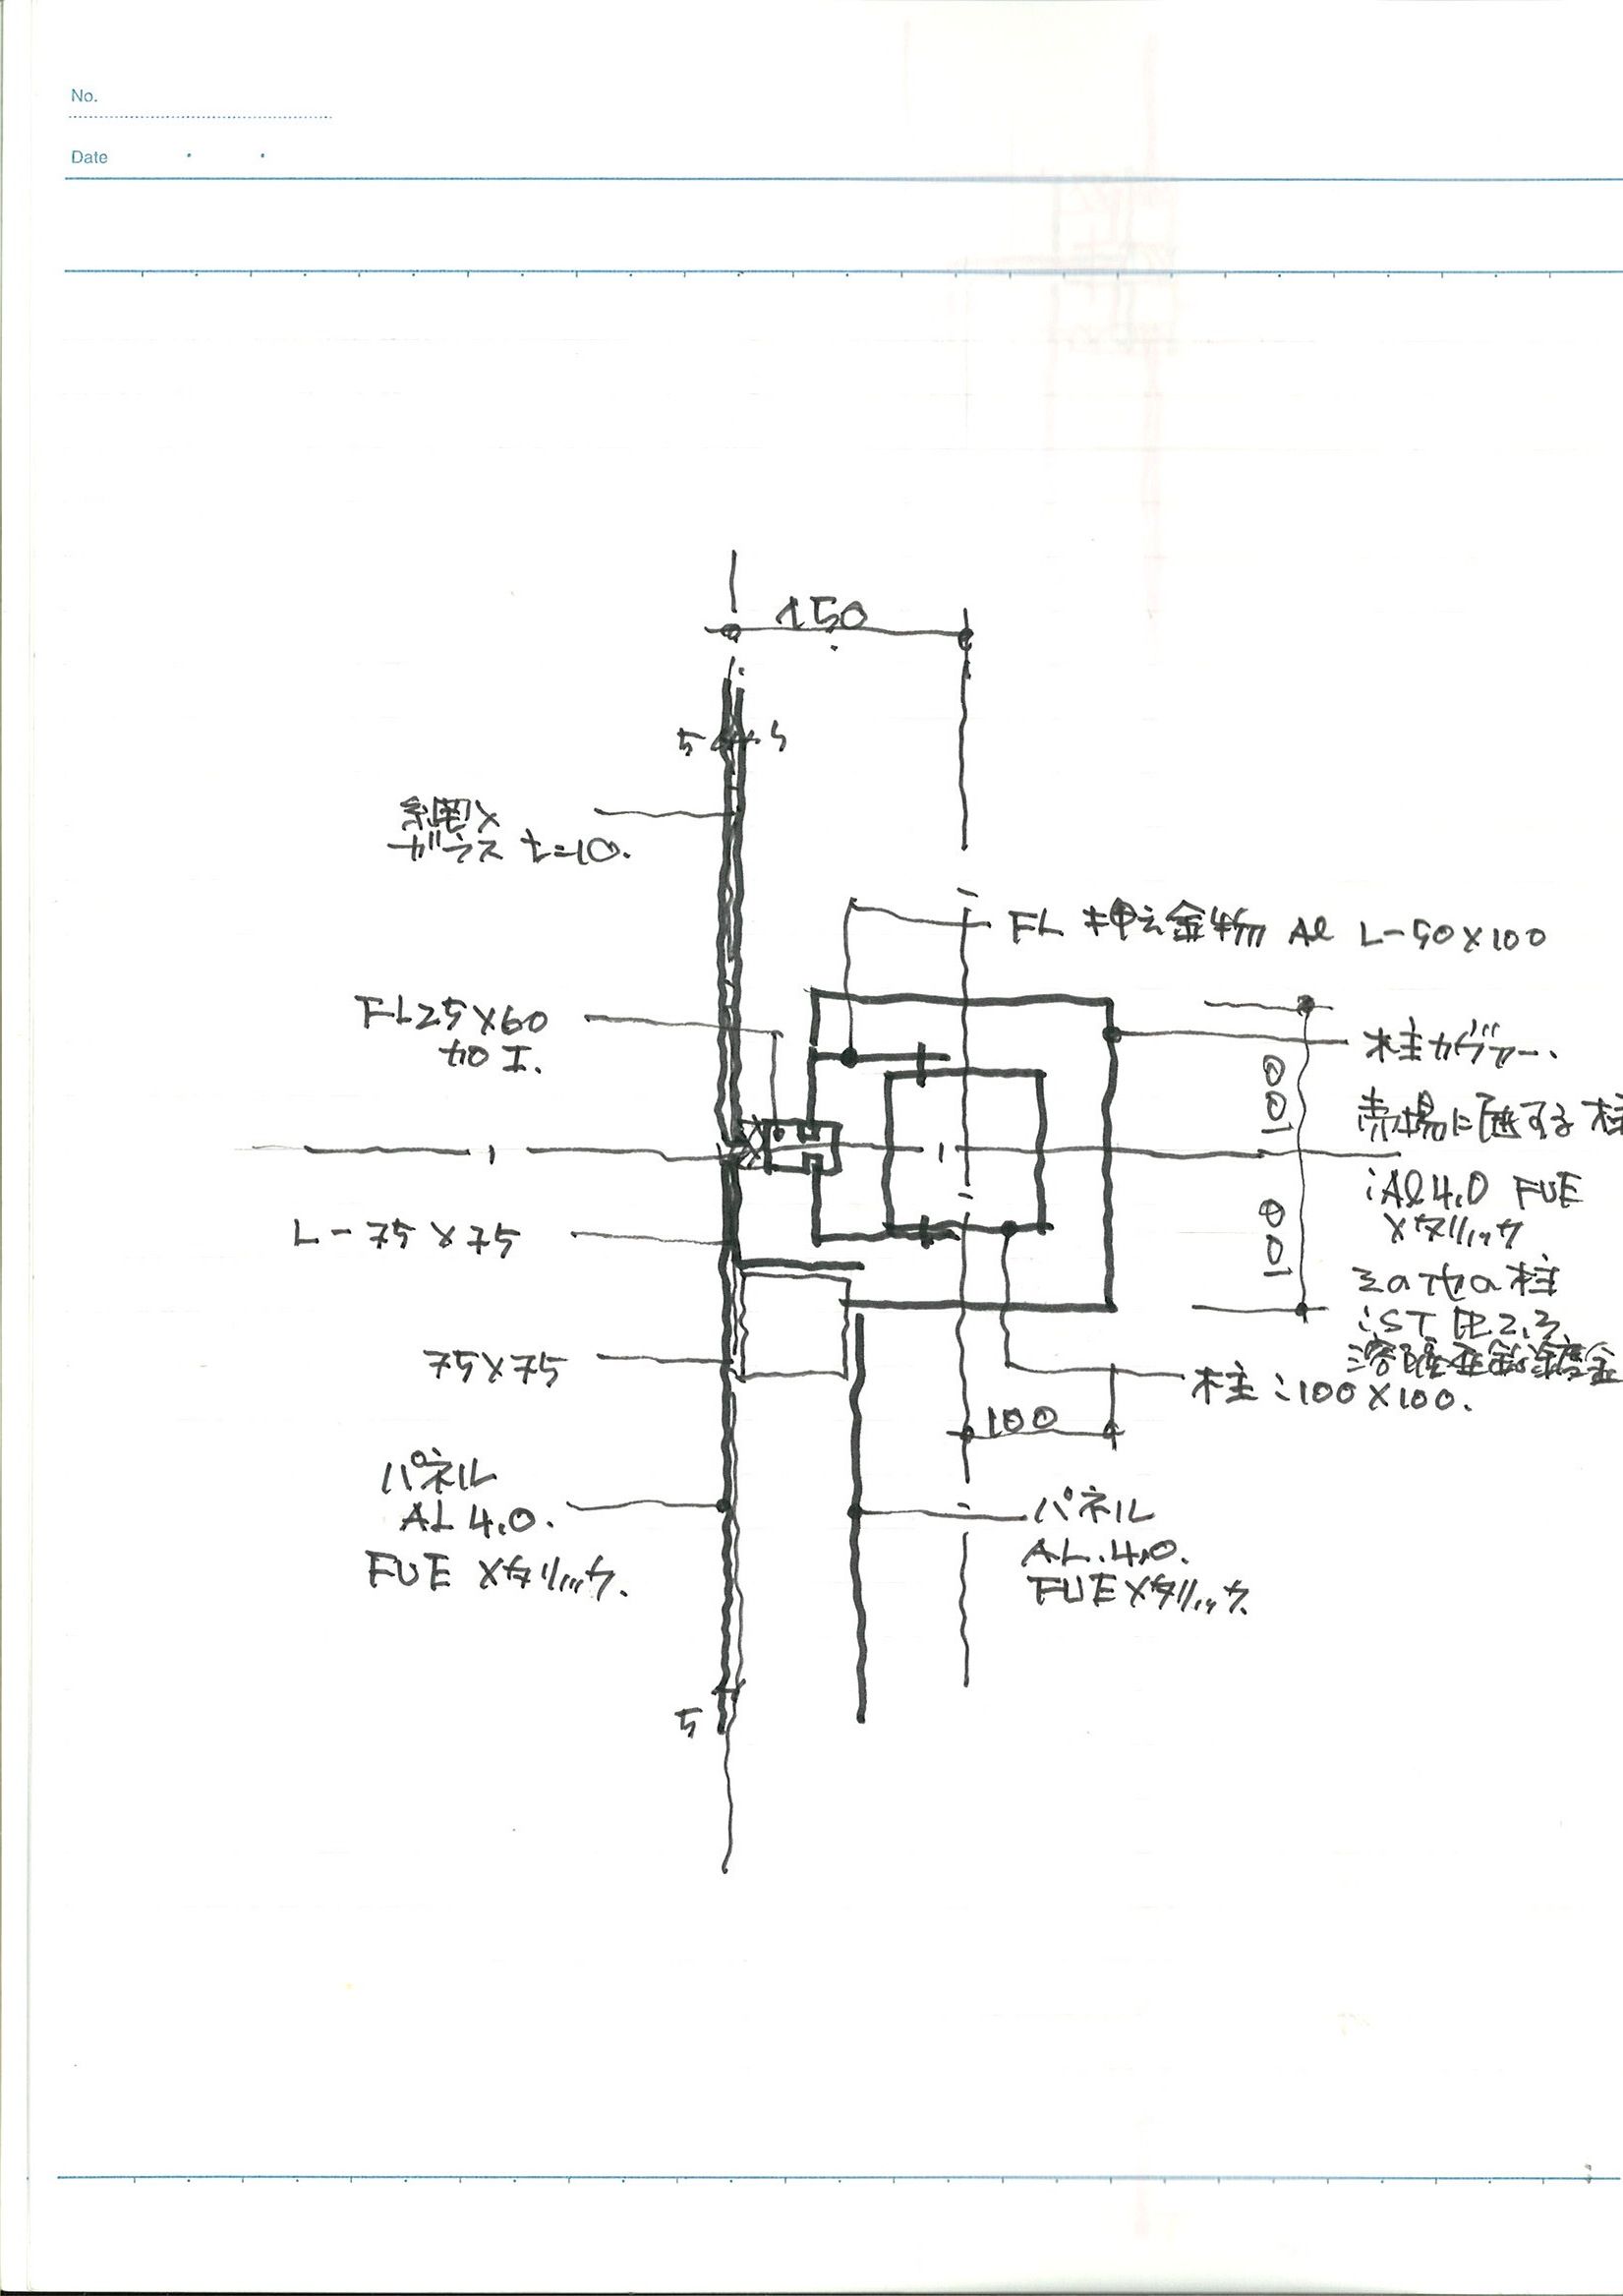 No.
Date
150
5 5
網入
ガラス t=10.
FL 押え金物 Al L-50×100
FL25×60
加工.
柱カヴァー.
100
売場に面する柱
:Al 4.0 FUE
メタリック
L-75×75
100
その他の柱
:ST 2.3
溶融亜鉛鍍金
75×75
柱:100×100.
100
パネル
AL 4.0.
FUE メタリック.
パネル
AL. 4.0.
FUE メタリック.
5